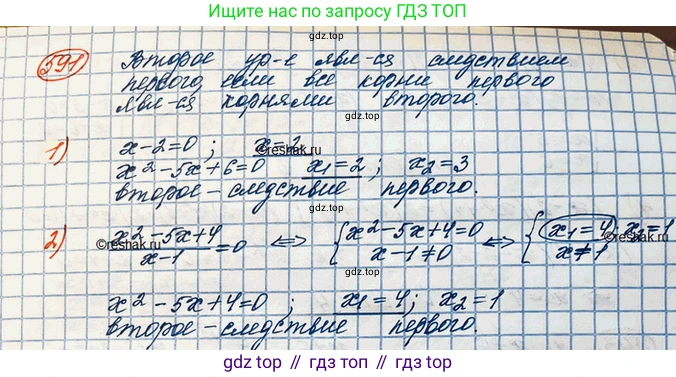 Ищите нас по запросу ГДЗ ТОП
591
Второе ур-е явл-ся следствием
первого, если все корни первого
явл-ся корнями второго.
gdz.top
1) x-2=0 ; x=2
©reshak.ru
x²-5x+6=0 x₁=2 ; x₂=3
второе-следствие первого.
2) x²-5x+4/x-1=0 ⇔ {x²-5x+4=0 x-1≠0 ⇔ {x₁=4, x₂=1 x≠1
x²-5x+4=0 ; x₁=4; x₂=1
второе-следствие первого.
gdz top // гдз топ // гдз top